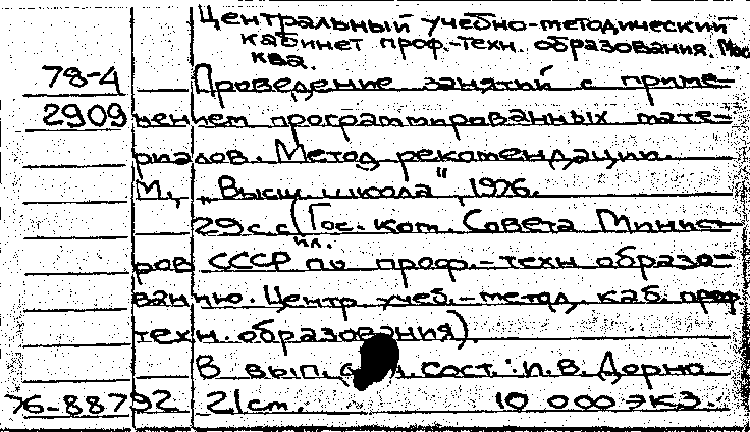 Центральный учебно-методический
кабинет проф.-техн. образования. Мос
ква.
78-4 Проведение занятий с приме-
2909 нением программированных мате-
риалов. Метод рекомендации.
М., „Высш школа“, 1976.
29 с. с ил. (Гос. ком. Совета Минист-
ров СССР по проф.-техн образо-
ванию. Центр учеб.-метод, каб. проф
техн. образования).
В вып. Сост.: П. В. Дорно
76-88792 21 см. 10 000 экз.